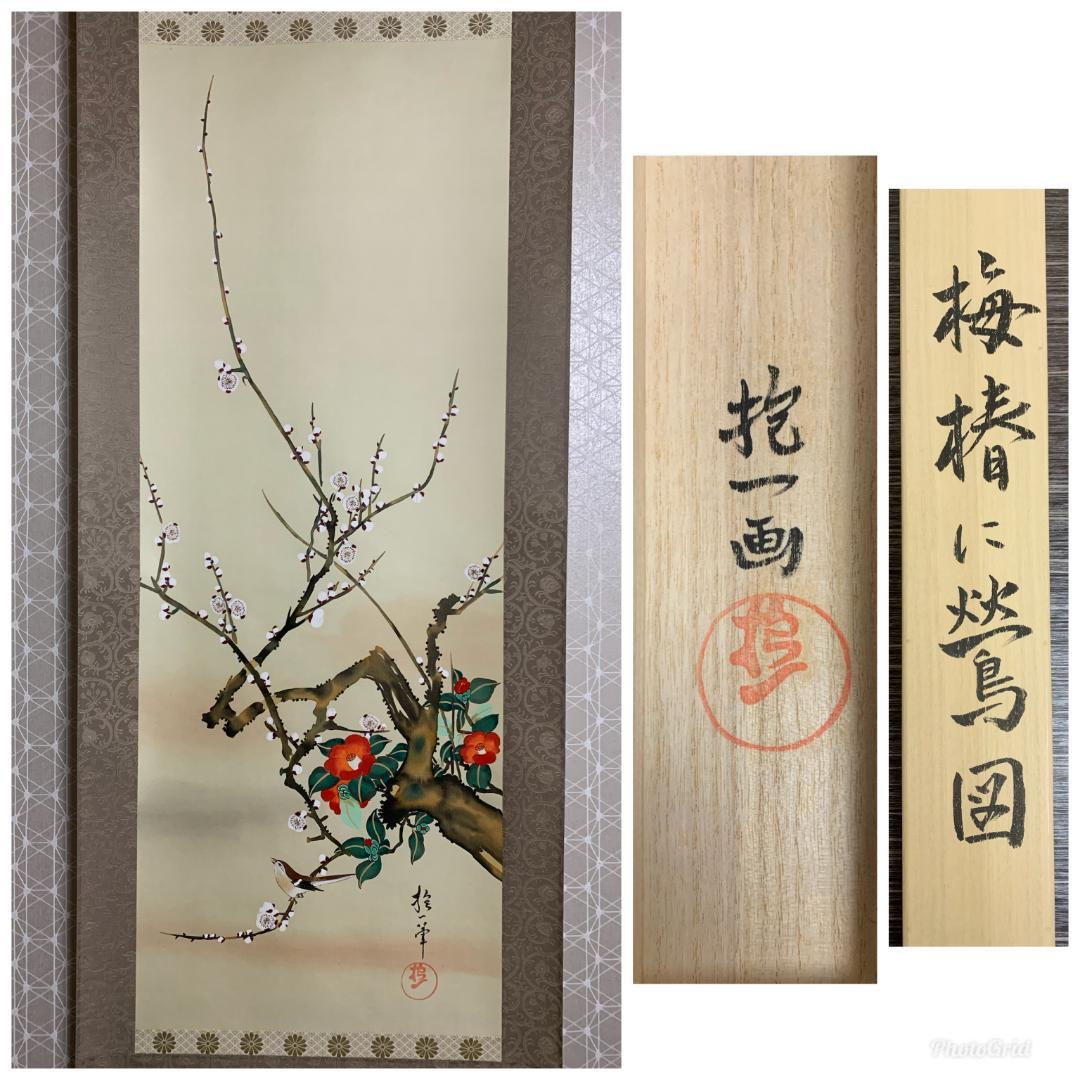 抱一筆
抱一
抱一画
抱一
梅椿に鶯図
PhotoGrid